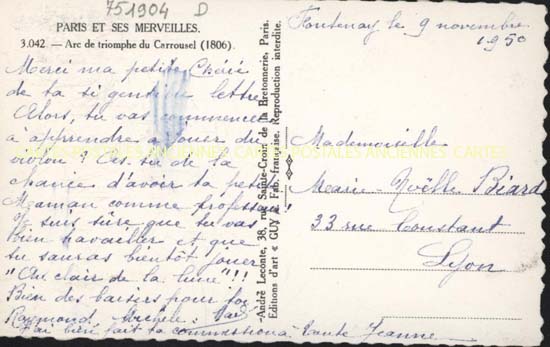 751904 D
PARIS ET SES MERVEILLES.
3.042. — Arc de triomphe du Carrousel (1806).
Merci ma petite Chérie
de ta si gentille lettre
Alors, tu vas commencer
à apprendre à jouer du
violon ? As tu de la
chance d'avoir ta petite
Maman comme professeur !
Je suis sûre que tu vas
bien travailler et que
tu sauras bientôt jouer
"Au clair de la lune" !!!
Bien des baisers pour toi
Raymond. Michèle.
J'ai bien fait ta commission à tante Jeanne
André Leconte, 38, rue Sainte-Croix de la Bretonnerie, Paris.
Editions d'art « GUY » Fab. française. Reproduction interdite.
Fontenay le 9 novembre
1950
Mademoiselle
Marie-Noëlle Biard
33 rue Constant
Lyon
CARTES POSTALES ANCIENNES